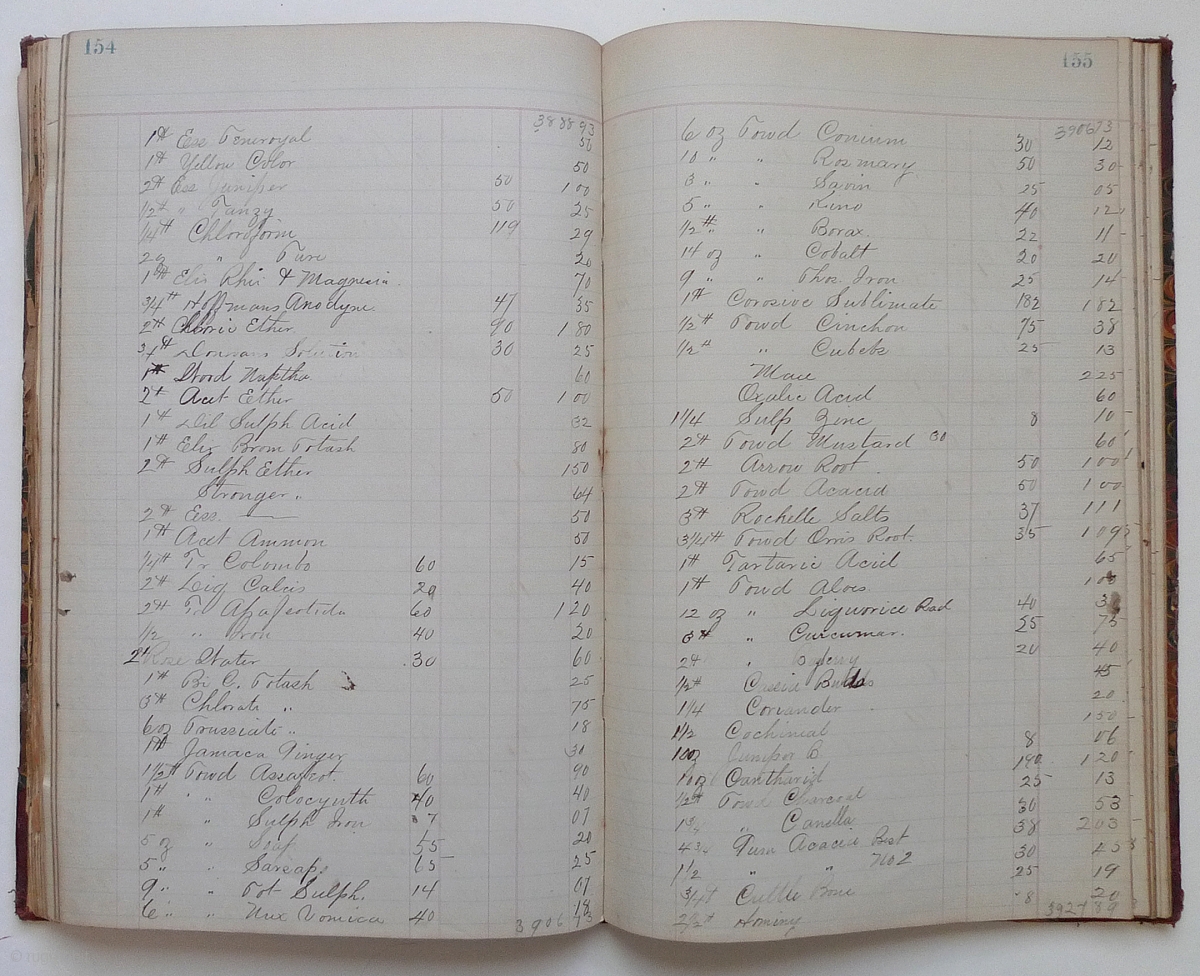 154
388893
1# Ess Peneroyal 50
1# Yellow Color 50
2# Ess Juniper 50 1 00
1/2# " Tanzy 50 25
1/4# Chloroform 119 29
" Pure 20
1# Elix Rhii & Magnesia 70
3/4# Hoffmans Anodyne 47 35
2# Chloric Ether 90 1 80
Donvans Solution 30 25
1# Wood Naptha 60
2# Acet Ether 50 1 00
1# Dil Sulph Acid 32
1# Elix Brom Potash 80
2# Sulph Ether 150
Stronger " 64
2# Ess. — 50
1# Acet Ammon 50
1/4# Tr Colombo 60 15
2# Liq Calcis 20 40
2# Tr Assafoetida 60 1 20
1/2 " Iron 40 20
2# Rose Water 30 60
1# Bi C. Potash 25
3# Chlorate " 75
6 oz Prussiate " 18
1# Jamaca Ginger 30
1 1/2# Powd Assafoet. 60 90
1# " Colocynth 40 40
1# " Sulph Iron 7 07
5 oz " Soap 55 20
5 " " Sarsaps 65 25
9 " " Pot Sulph. 14 07
6 " " Nux Vomica 40 18
390673
155
390673
6 oz Powd Conium 30 12
10 " " Rosmary 50 30
3 " " Savin 25 05
5 " " Kino 40 12
1/2# " Borax 22 11
14 oz " Cobalt 20 20
9 " " Phos. Iron 25 14
1# Corosive Sublimate 182 182
1/2# Powd Cinchon 75 38
1/2# " Cubebs 25 13
Mace 225
Oxalic Acid 60
1 1/4 Sulp Zinc 8 10
2# Powd Mustard 30 60
2# Arrow Root 50 1 00
2# Powd Acacia 50 1 00
3# Rochelle Salts 37 111
Powd Orris Root. 35
1# Tartaric Acid 65
1# Powd Aloes 100
12 oz " Liquorice Rad 40
3# " Curcumar. 25 75
2# " Bayberry 20 40
1/2# Cassia Budds 45
1/4 Coriander 20
1 1/2 Cochineal 150
Juniper B 8 06
Cantharid 190 120
1/2# Powd Charcoal 25 13
" Canella 30 53
Gum Acacia Best 58 203
1 1/2 " " No 2 30 45
3/4# Cuttle Bone 25 19
Hominy 8 20